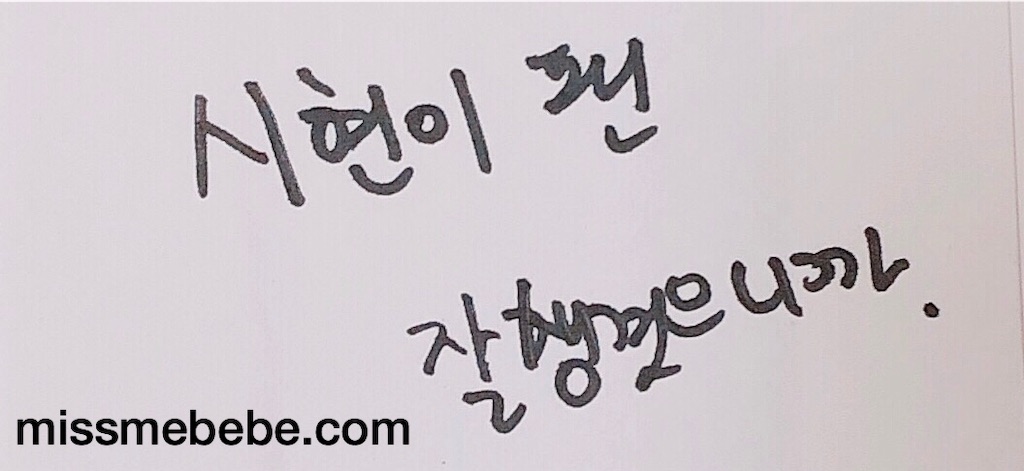 시현이 팬
잘생겼으니까.
missmebebe.com